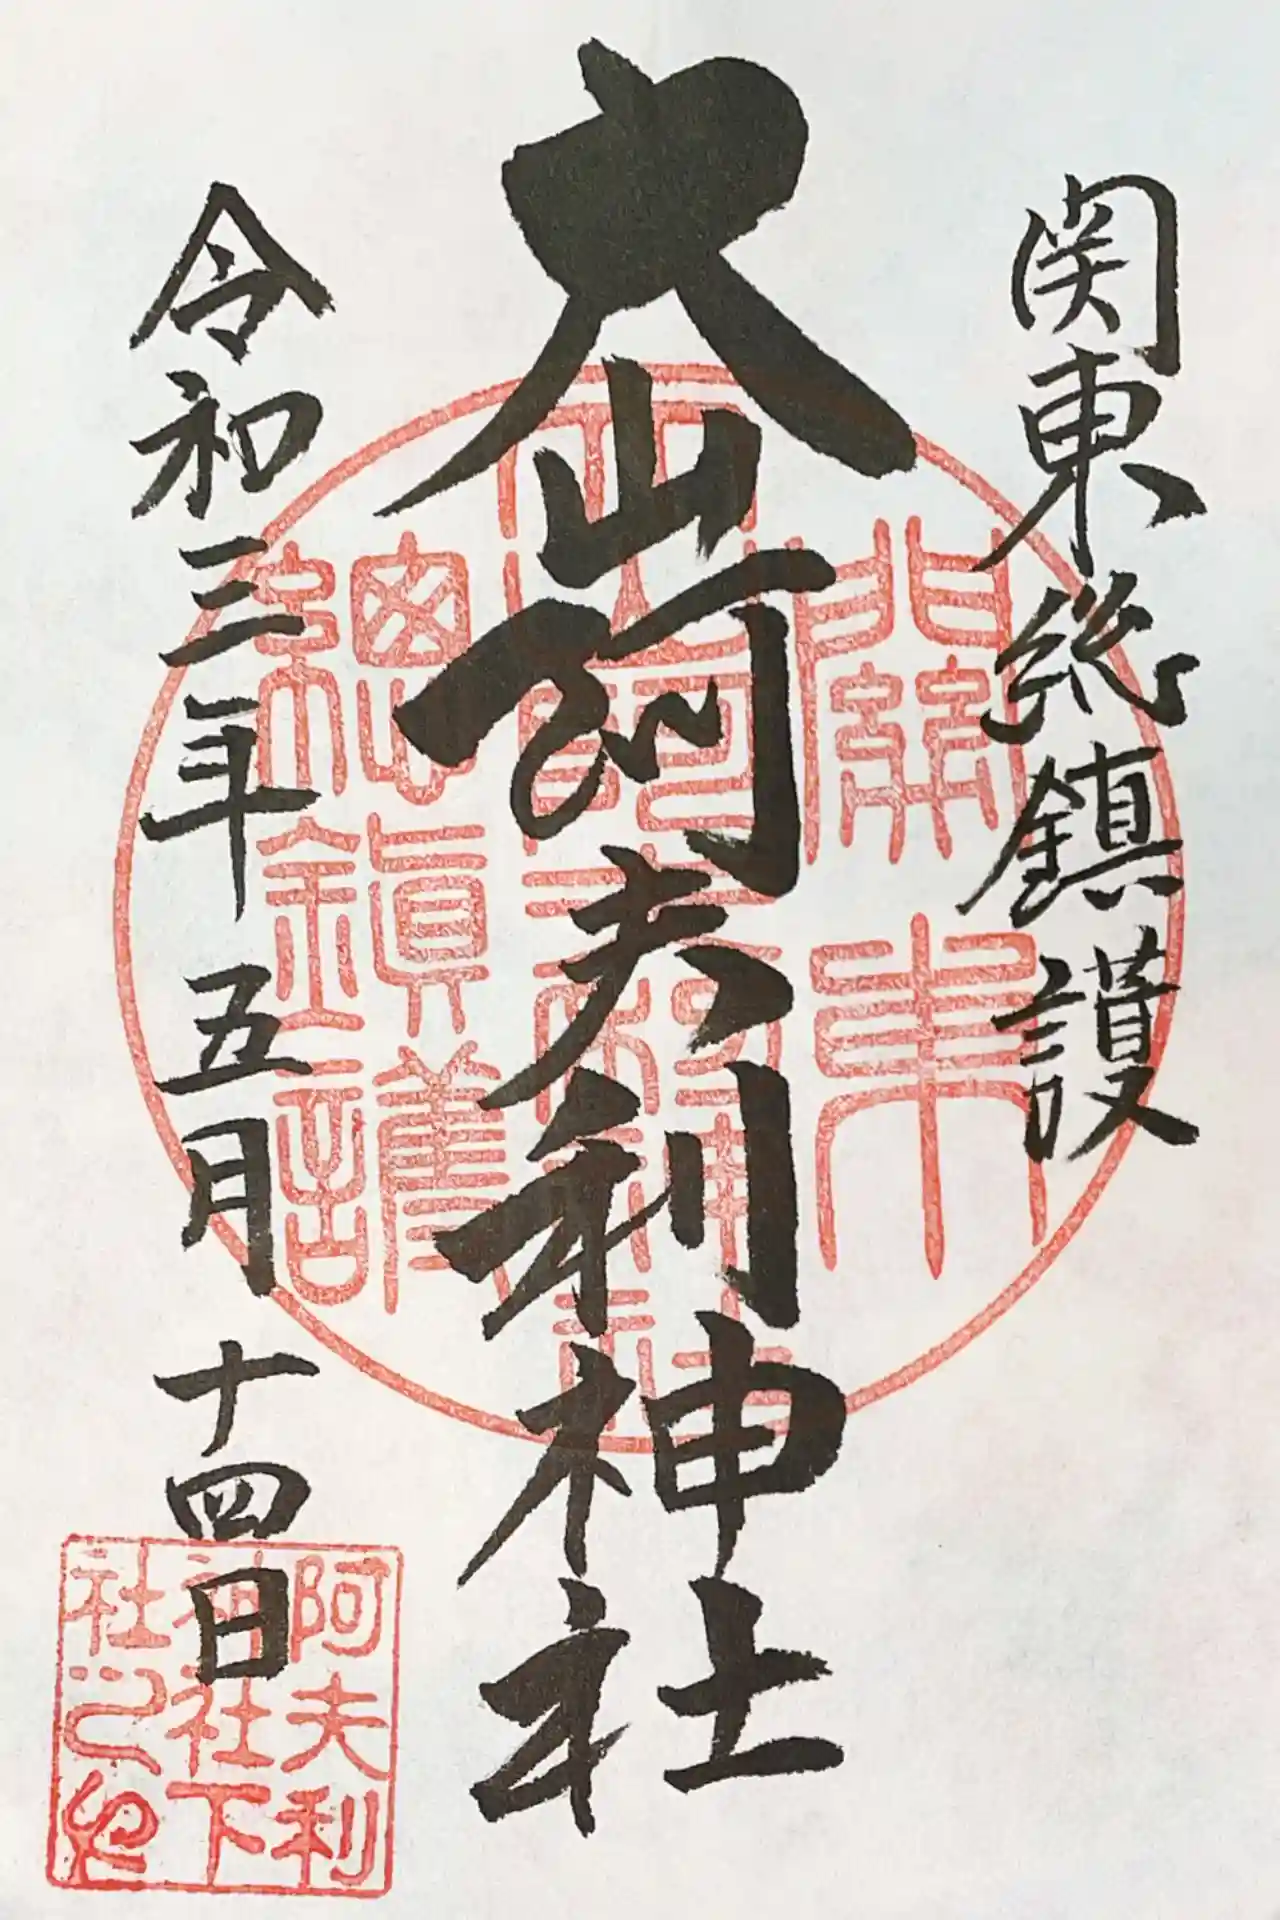 関東総鎮護
大山阿夫利神社
令和三年五月十四日
關東
大山阿夫利神社
總鎮護
阿夫利
神社下
社之印